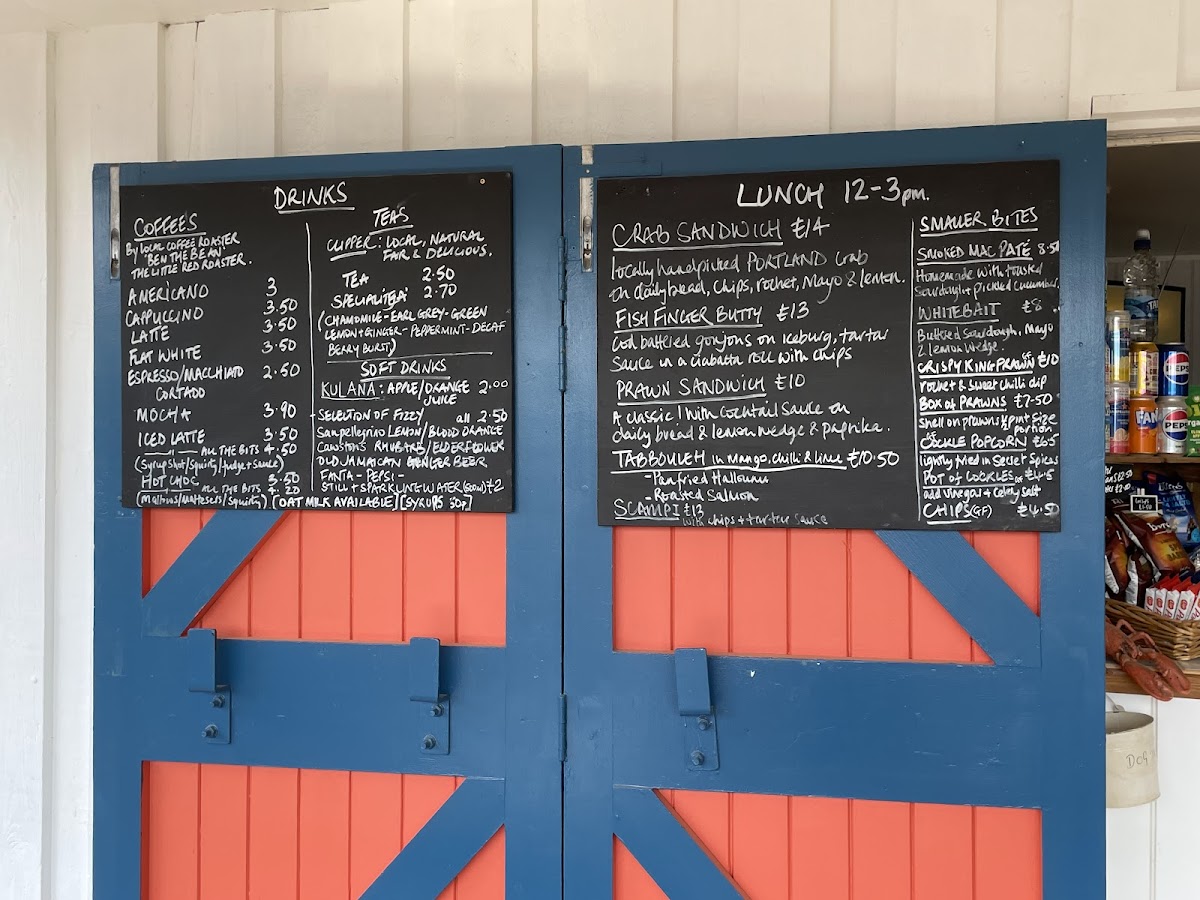 DRINKS
COFFEE'S
By LOCAL COFFEE ROASTER
"BEN THE BEAN"
THE LITTLE RED ROASTER.
AMERICANO 3
CAPPUCCINO 3.50
LATTE 3.50
FLAT WHITE 3.50
ESPRESSO/MACCHIATO 2.50
CORTADO
MOCHA 3.90
ICED LATTE 3.50
ALL THE BITS 4.50
(Syrup shot/squirty/fudge + sauce)
HOT CHOC 3.50
ALL THE BITS 4.20
(mallows/maltesers/squirty)
TEAS
CLIPPER: LOCAL, NATURAL
FAIR & DELICIOUS.
TEA 2.50
SPECIALITEA 2.70
(CHAMOMILE - EARL GREY - GREEN
LEMON + GINGER - PEPPERMINT - DECAF
BERRY BURST)
SOFT DRINKS
KULANA: APPLE/ORANGE 2.00
JUICE
- SELECTION OF FIZZY all 2.50
Sanpellegrino LEMON/BLOOD ORANGE
CAWSTONS RHUBARB/ELDERFLOWER
OLD JAMAICAN GINGER BEER
FANTA - PEPSI -
STILL + SPARKLING WATER (500ml) £2
(OAT MILK AVAILABLE) [SYRUPS 50P]
LUNCH 12-3pm.
CRAB SANDWICH £14
locally handpicked PORTLAND Crab
on daily bread, Chips, rocket, Mayo & lemon.
FISH FINGER BUTTY £13
Cod battered goujons on iceburg, tartar
Sauce in a ciabatta roll with chips
PRAWN SANDWICH £10
A classic! with Cocktail Sauce on
daily bread & lemon wedge & paprika.
TABBOULEH in Mango, chilli & lime £10.50
- Panfried Halloumi
- Roasted Salmon
SCAMPI £13
with chips + tartar sauce
SMALLER BITES
SMOKED MAC PATÉ 8.50
Homemade with toasted
Sourdough + pickled cucumber.
WHITEBAIT £8
Buttered Sourdough, Mayo
& lemon wedge.
CRISPY KING PRAWN GF £10
rocket & sweet chilli dip
BOX of PRAWNS £7.50
shell on prawns ½ pint size
portion
COCKLE POPCORN £6.5
lightly fried in secret spices
POT of COCKLES GF £4.5
add Vinegar + Celery Salt
CHIPS (GF) £4.50
FANTA
PEPSI
PEPSI
DOG